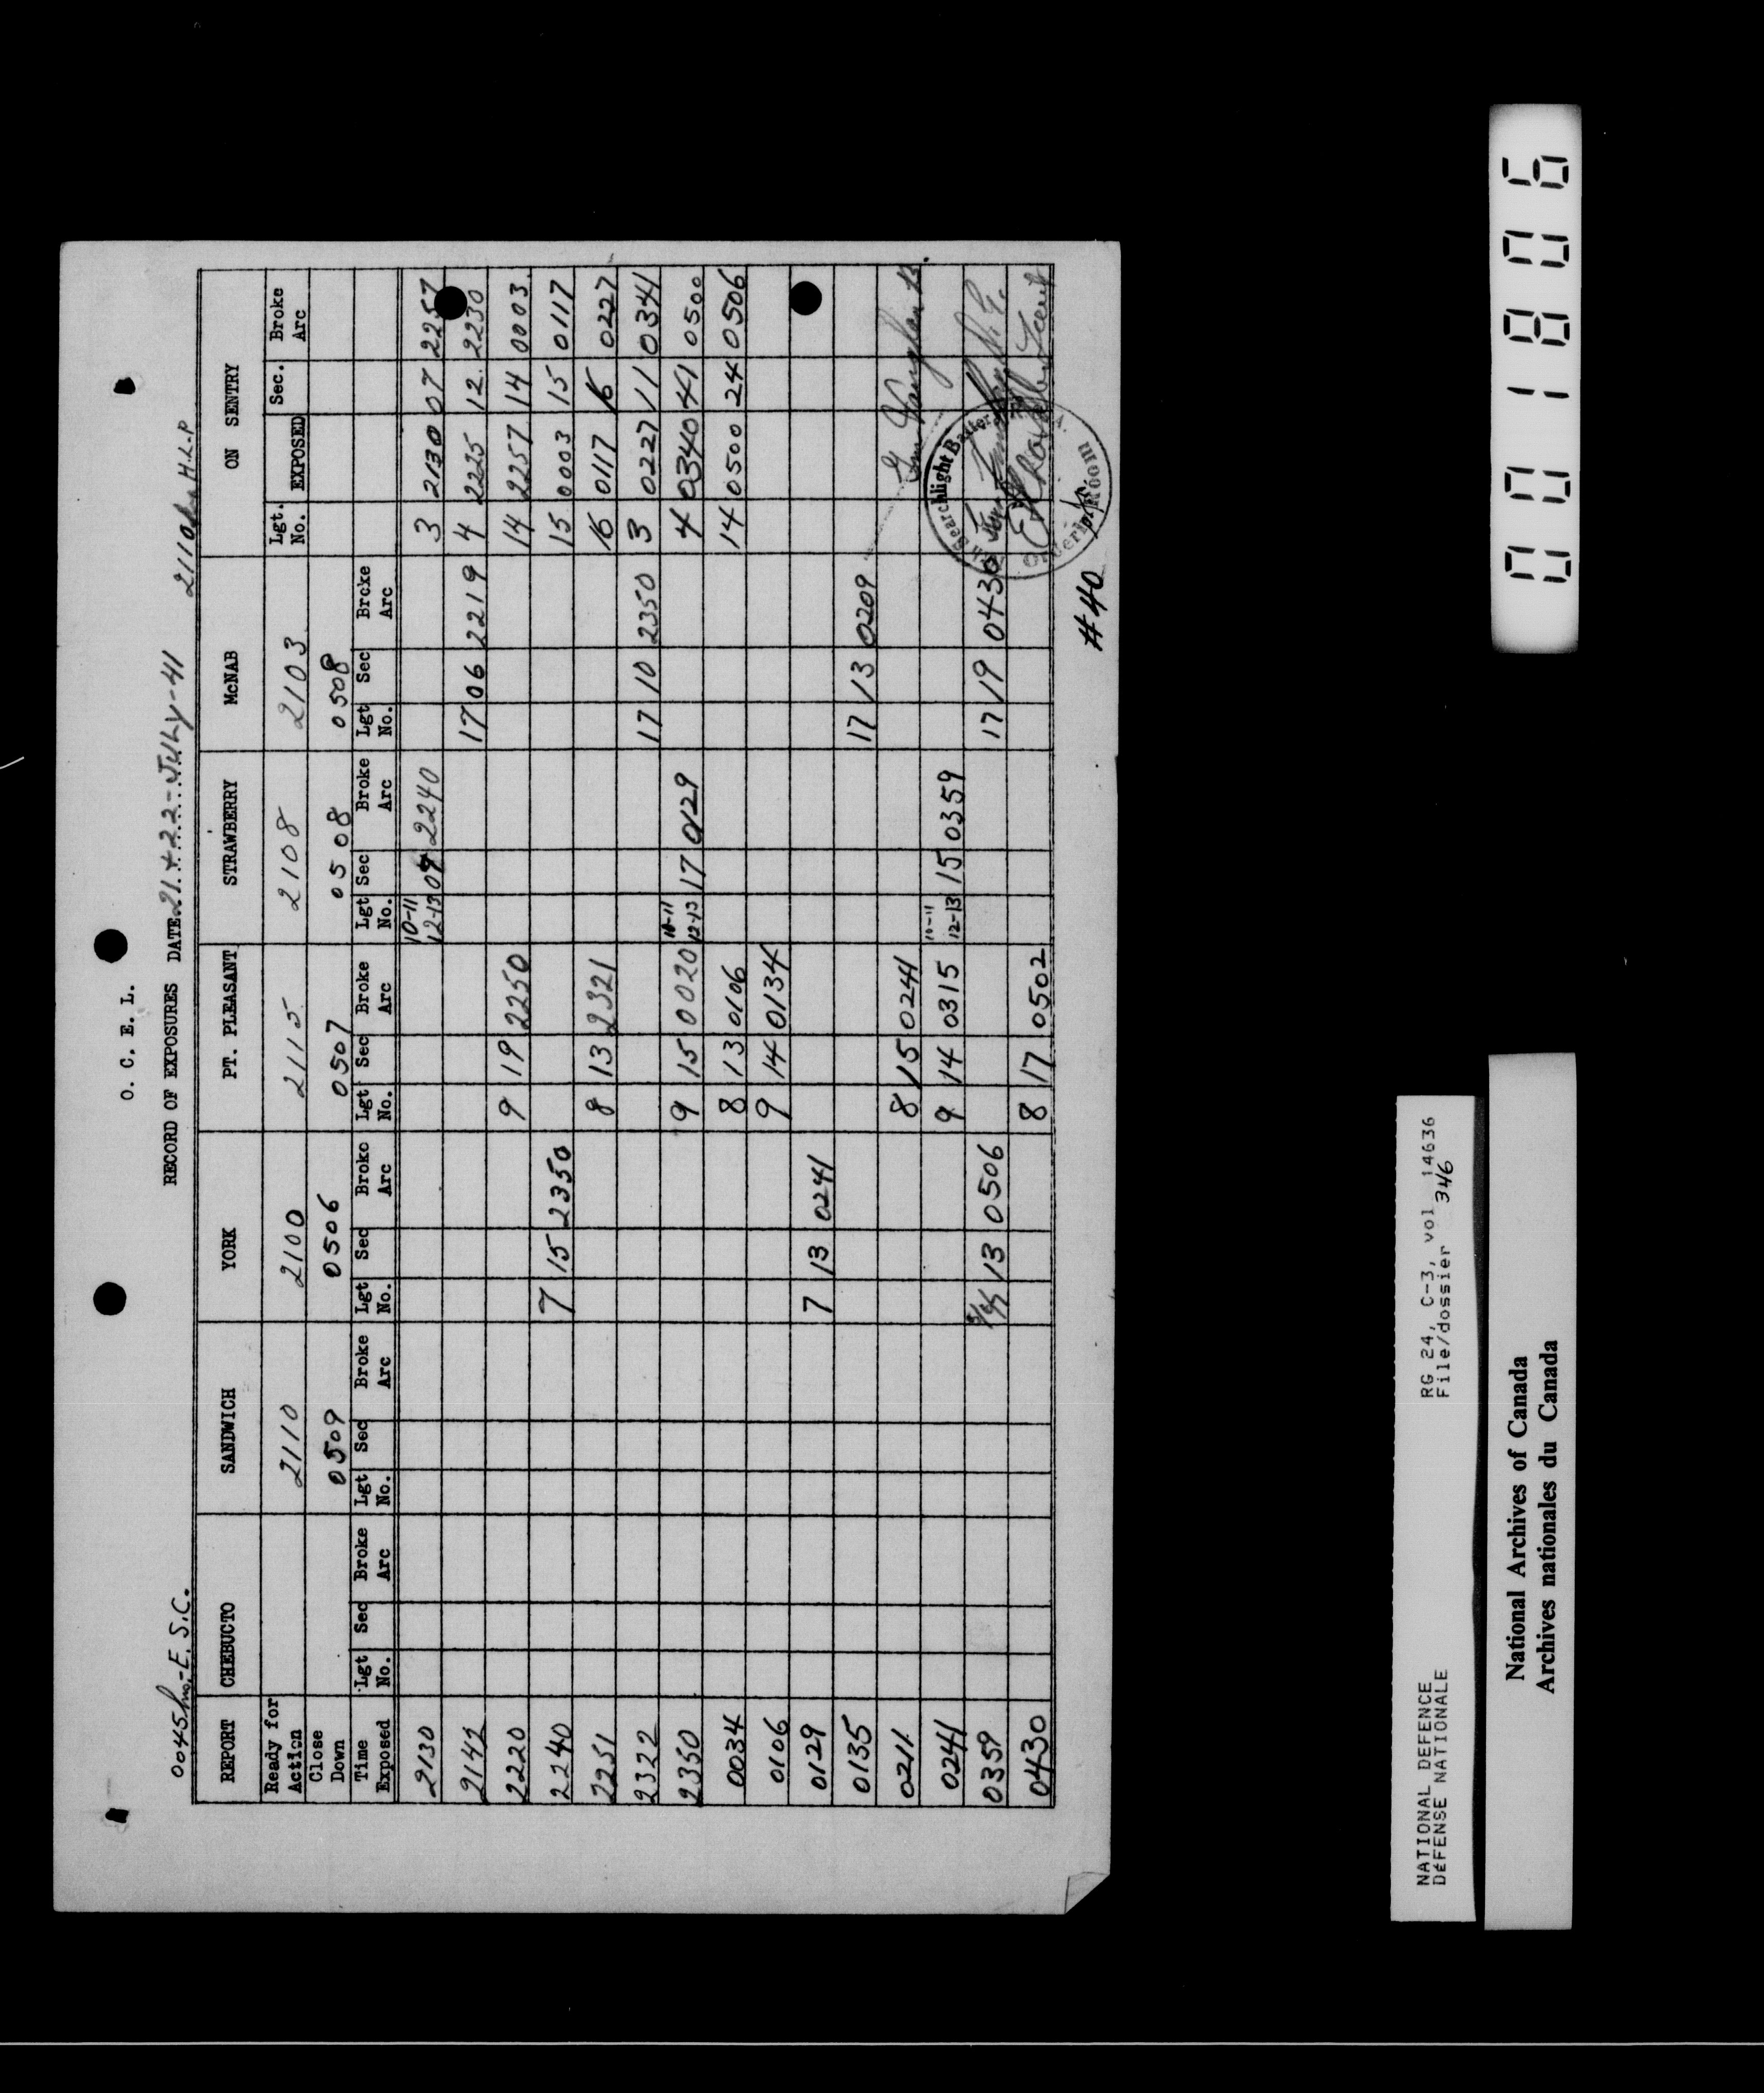 O. C. E. L.
RECORD OF EXPOSURES DATE 21 + 22 - July - 41
0045 hrs - E.S.C. 2110 hrs H.L.P
REPORT CHEBUCTO SANDWICH YORK PT. PLEASANT STRAWBERRY McNAB ON SENTRY
Ready for Action 2110 2100 2115 2108 2103 Lgt. No. EXPOSED Sec. Broke Arc
Close Down 0509 0506 0507 0508 0508
Time Exposed Lgt No. Sec Broke Arc Lgt No. Sec Broke Arc Lgt No. Sec Broke Arc Lgt No. Sec Broke Arc Lgt No. Sec Broke Arc Lgt No. Sec Broke Arc
2130 10-11 12-13 2240 3 2130 07 2257
2142 17 06 2219 4 2225 12 2230
2220 9 19 2250 14 2257 14 0003
2240 7 15 2350 15 0003 15 0117
2251 8 13 2321 16 0117 16 0227
2322 17 10 2350 3 0227 11 0341
2350 9 15 0020 10-11 12-13 17 0129 4 0340 41 0500
0034 8 13 0106 14 0500 24 0506
0106 9 14 0134
0129 7 13 0241
0135 17 13 0209
0211 8 15 0241
0241 9 14 0315 10-11 12-13 15 0359
0359 13 0506 17 19 0430
0430 8 17 0502
Searchlight Battery
Orderly Room
#40
NATIONAL DEFENCE RG 24, C-3, vol 14636
DÉFENSE NATIONALE File/dossier 346
National Archives of Canada
Archives nationales du Canada
001806